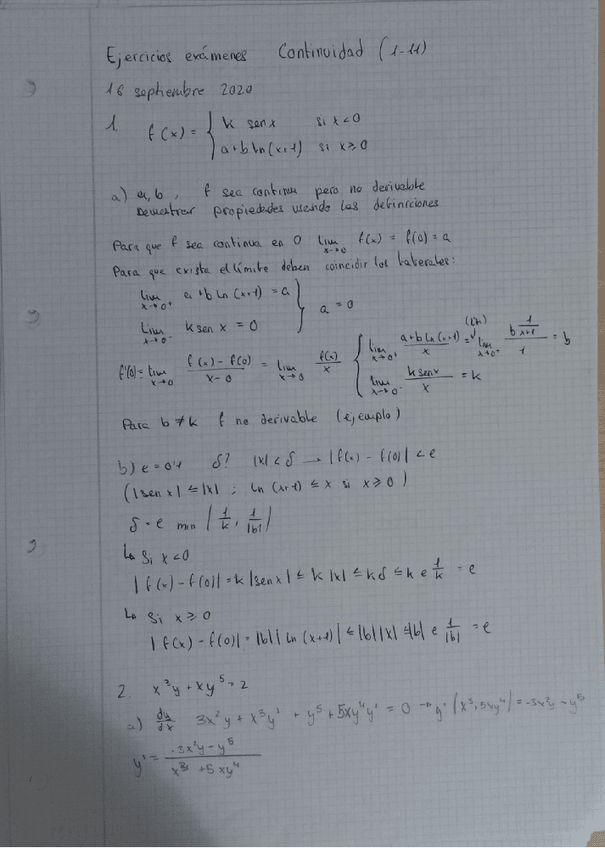 Ejercicios exámenes Continuidad (1-11)
16 septiembre 2020
1 f(x) = { k sen x si x<0
a+b ln(x+1) si x≥0
a) a, b, f sea continua pero no derivable
Demostrar propiedades usando las definiciones
Para que f sea continua en 0 lim x→0 f(x) = f(0) = a
Para que exista el límite deben coincidir los laterales:
lim x→0+ a+b ln(x+1) = a
lim x→0- k sen x = 0 } a = 0
f'(0) = lim x→0 f(x)-f(0) / x-0 = lim x→0 f(x)/x { lim x→0+ a+b ln(x+1) / x = (L'H) lim x→0+ b 1/x+1 / 1 = b
lim x→0- k senx / x = k
Para b ≠ k f no derivable (ejemplo)
b) e = 0'1 δ? |x| < δ → |f(x) - f(0)| < e
(|sen x| ≤ |x| ; ln(x+1) ≤ x si x≥0)
δ = e min | 1/k , 1/|b| |
↳ Si x<0
|f(x) - f(0)| = k |sen x| ≤ k |x| ≤ kδ ≤ k e 1/k = e
↳ Si x≥0
|f(x) - f(0)| = |b| | ln(x+1)| ≤ |b||x| ≤ |b| e 1/|b| = e
2. x³y + xy⁵ = 2
a) dy/dx 3x²y + x³y' + y⁵ + 5xy⁴y' = 0 → y' (x³, 5xy⁴) = -3x²y - y⁵
y' = -3x²y - y⁵ / x³ + 5xy⁴